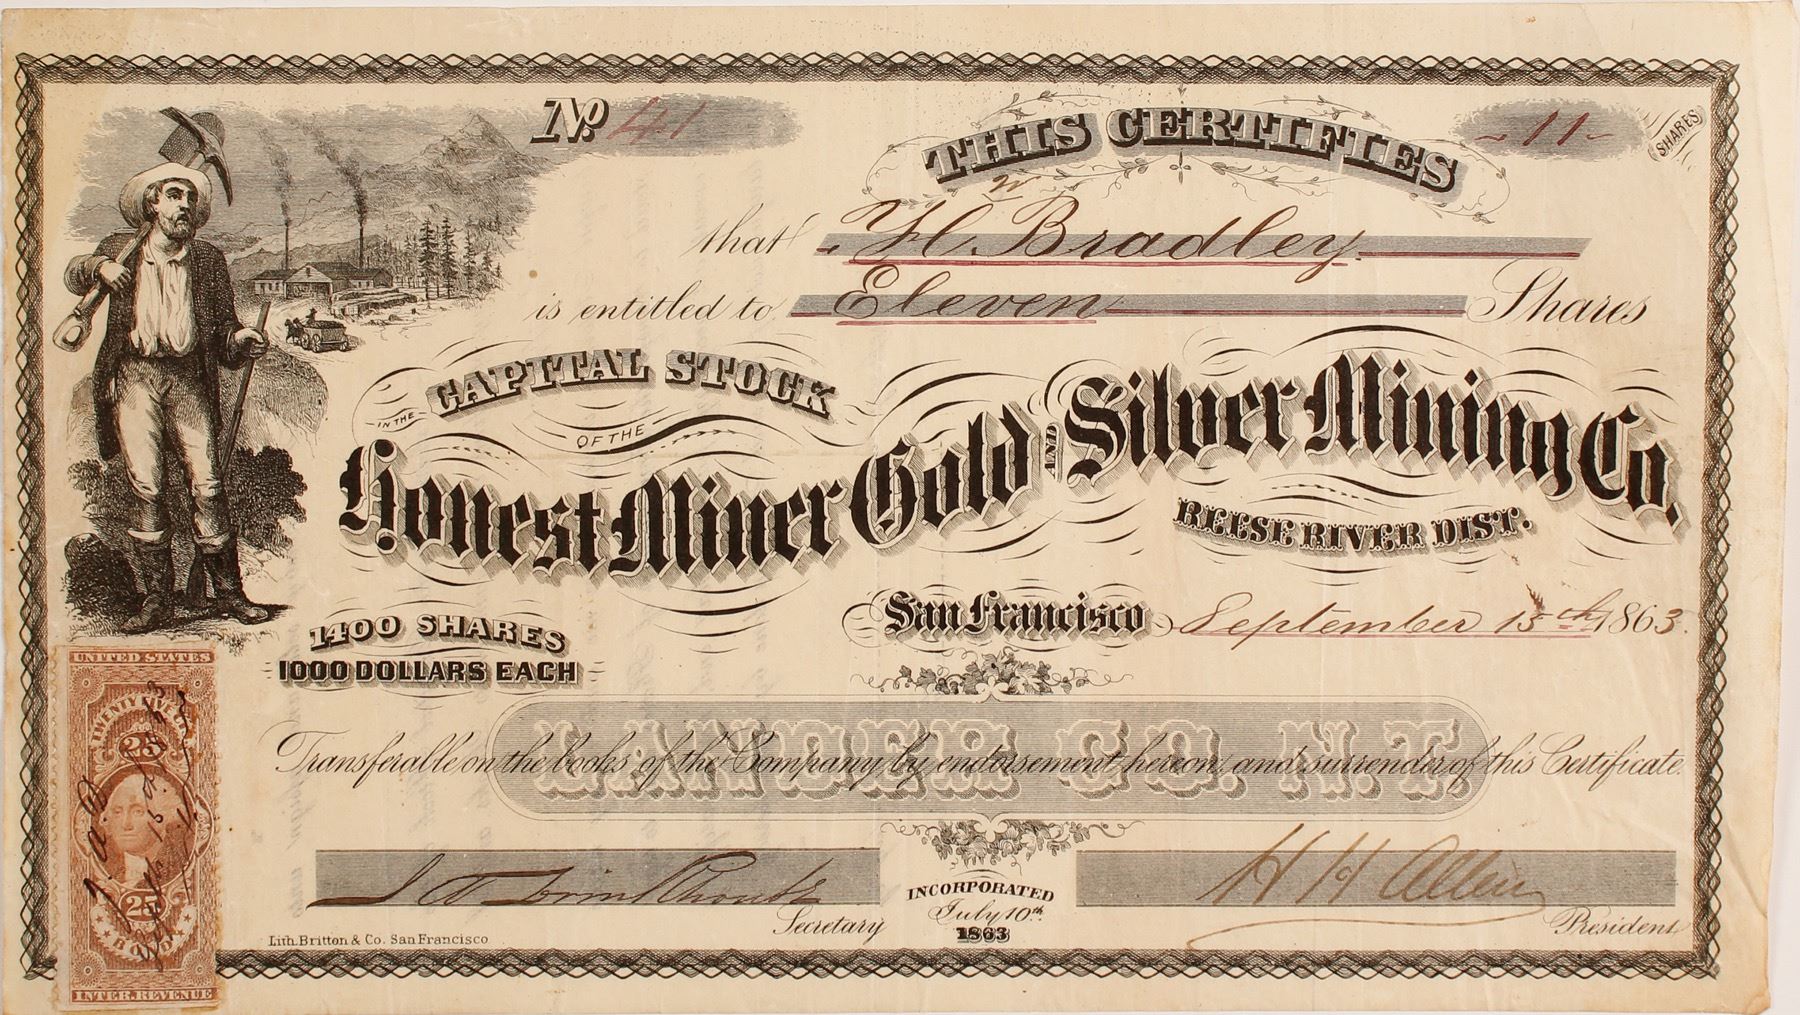 No. 41
THIS CERTIFIES
- 11 - SHARES
that H. W. Bradley
is entitled to Eleven Shares
IN THE CAPITAL STOCK
OF THE
Honest Miner Gold AND Silver Mining Co.
REESE RIVER DIST.
1400 SHARES
1000 DOLLARS EACH
San Francisco September 15th 1863.
LANDER CO. N.T.
Transferable on the books of the Company by endorsement hereon, and surrender of this Certificate.
Secretary
INCORPORATED
July 10th
1863
H H Allen
President
Lith. Britton & Co. San Francisco
UNITED STATES
TWENTY FIVE
25
25
BOND
INTER. REVENUE